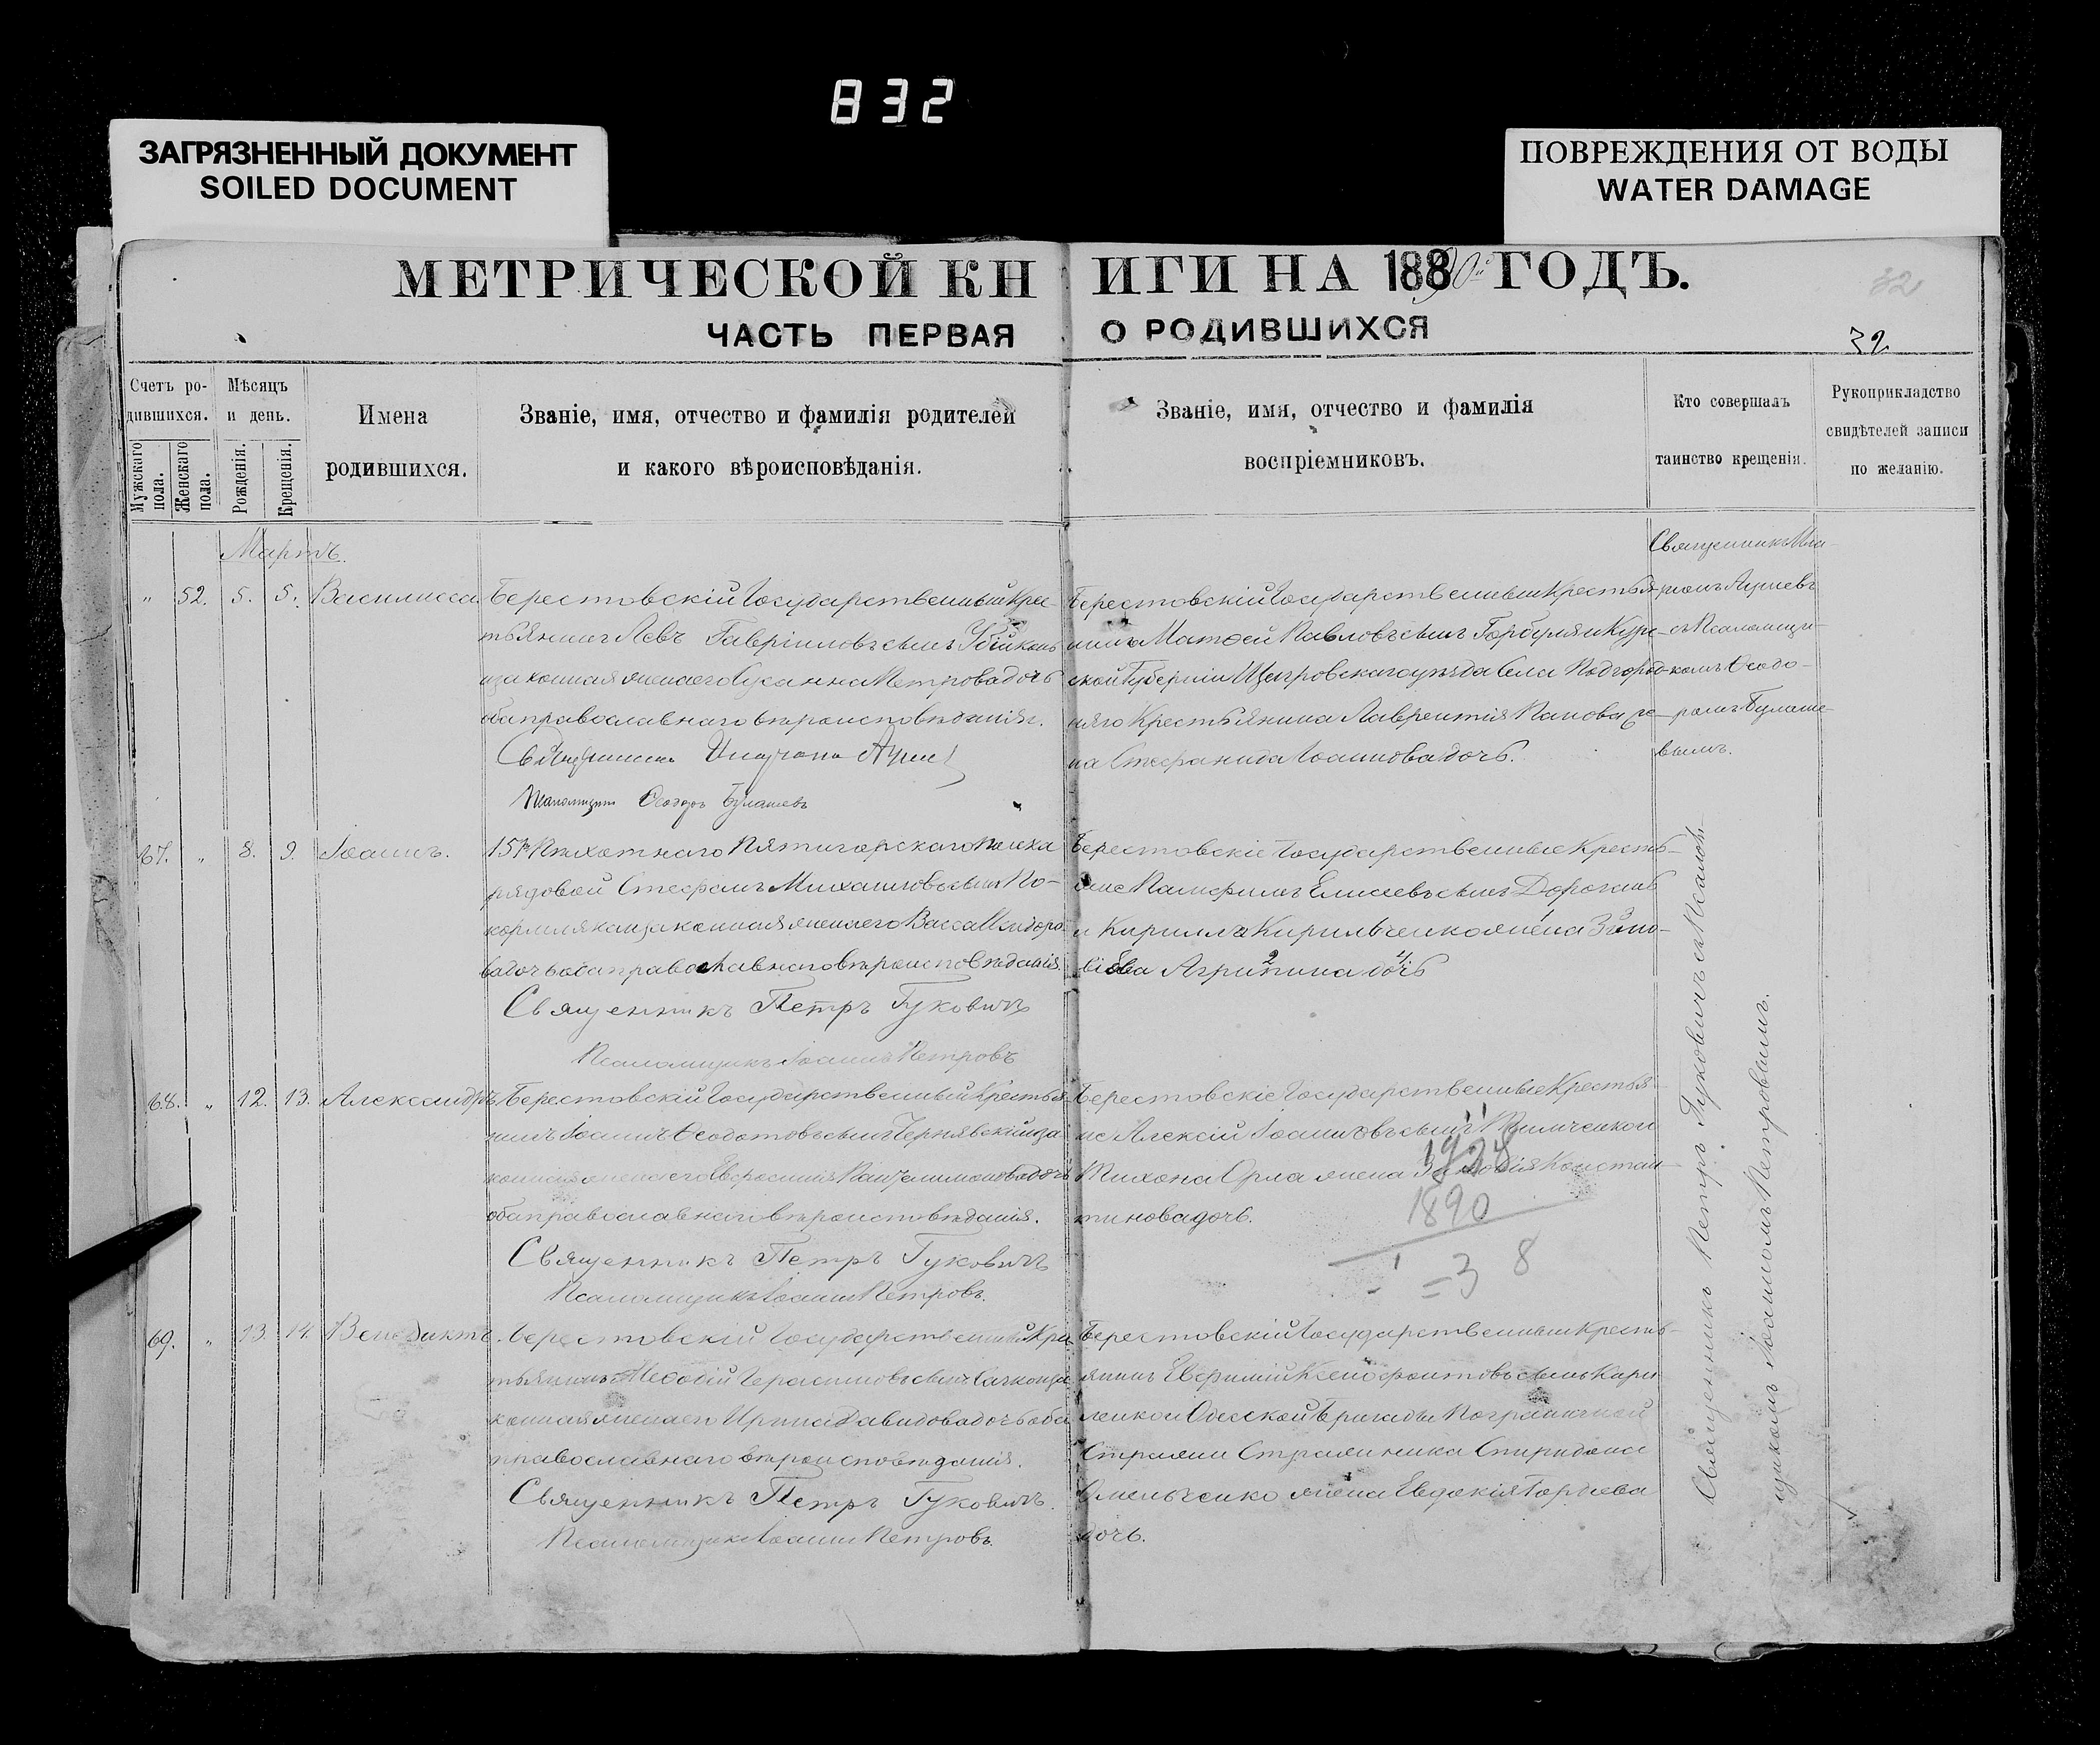 832
ЗАГРЯЗНЕННЫЙ ДОКУМЕНТ
SOILED DOCUMENT
ПОВРЕЖДЕНИЯ ОТ ВОДЫ
WATER DAMAGE
МЕТРИЧЕСКОЙ КНИГИ НА 1890й ГОДЪ.
ЧАСТЬ ПЕРВАЯ О РОДИВШИХСЯ
32
32
Счетъ ро-
дившихся.
Мужскаго пола.
Женскаго пола.
Мѣсяцъ
и день.
Рожденія.
Крещенія.
Имена
родившихся.
Званіе, имя, отчество и фамилія родителей
и какого вѣроисповѣданія.
Званіе, имя, отчество и фамилія
воспріемниковъ.
Кто совершалъ
таинство крещенія.
Рукоприкладство
свидѣтелей записи
по желанію.
Мартъ.
" 52. 5. 5. Василисса
Берестовскій Государственный Крес-
тьянинъ Левъ Гавріиловъ сынъ
и законная жена его Сусанна Петрова дочь
оба православнаго вѣроисповѣданія.
Священникъ
Псаломщикъ Ѳеодоръ Булашевъ
Берестовскій Государственный Крестья-
нинъ Матѳей Павловъ сынъ Горбуля и Курс-
ской Губерніи Щигровскаго уѣзда села Подгород-
няго Крестьянина Лаврентія Попова же-
на Стефанида Іоаннова дочь.
Священникъ
съ Псаломщи-
комъ Ѳеодо-
ромъ Булаше-
вымъ.
67. " 8. 9. Іоаннъ.
Пѣхотнаго Пятигорскаго полка
рядовой Стефанъ Михайловъ сынъ По-
кормляко и законная жена его Васса Исидоро-
ва дочь оба православнаго вѣроисповѣданія.
Священникъ Петръ Гуковичъ
Псаломщикъ Іоаннъ Петровъ
Берестовскіе Государственные Кресть-
яне Памфилъ Елисеевъ сынъ Дорожан
и Кирилла Кирильченко жена Зино-
віева Агрипина дочь
68. " 12. 13. Александръ
Берестовскій Государственный Крестья-
нинъ Іоаннъ Ѳеодотовъ сынъ Чернявскій и за-
конная жена его Евфросинія Пантелимонова дочь
оба православнаго вѣроисповѣданія.
Священникъ Петръ Гуковичъ
Псаломщикъ Іоаннъ Петровъ.
Берестовскіе Государственные Крестья-
не Алексій Іоанновъ сынъ и
Тихона Орла жена Констан-
тинова дочь.
1928
1890
=38
69. " 13. 14. Венедиктъ.
Берестовскій Государственный Крес-
тьянинъ Меѳодій Герасимовъ сынъ и за-
конная жена его Ирина Давидова дочь оба
православнаго вѣроисповѣданія.
Священникъ Петръ Гуковичъ.
Псаломщикъ Іоаннъ Петровъ.
Берестовскій Государственный Кресть-
янинъ Евфимій Ксенофонтовъ сынъ Кири-
ленко и Одесской Бригады Пограничной
Стражи Стражника Спиридона
Омельченко жена Евдокія
дочь.
Священникъ Петръ Гуковичъ съ Псалом-
щикомъ Іоанномъ Петровымъ.